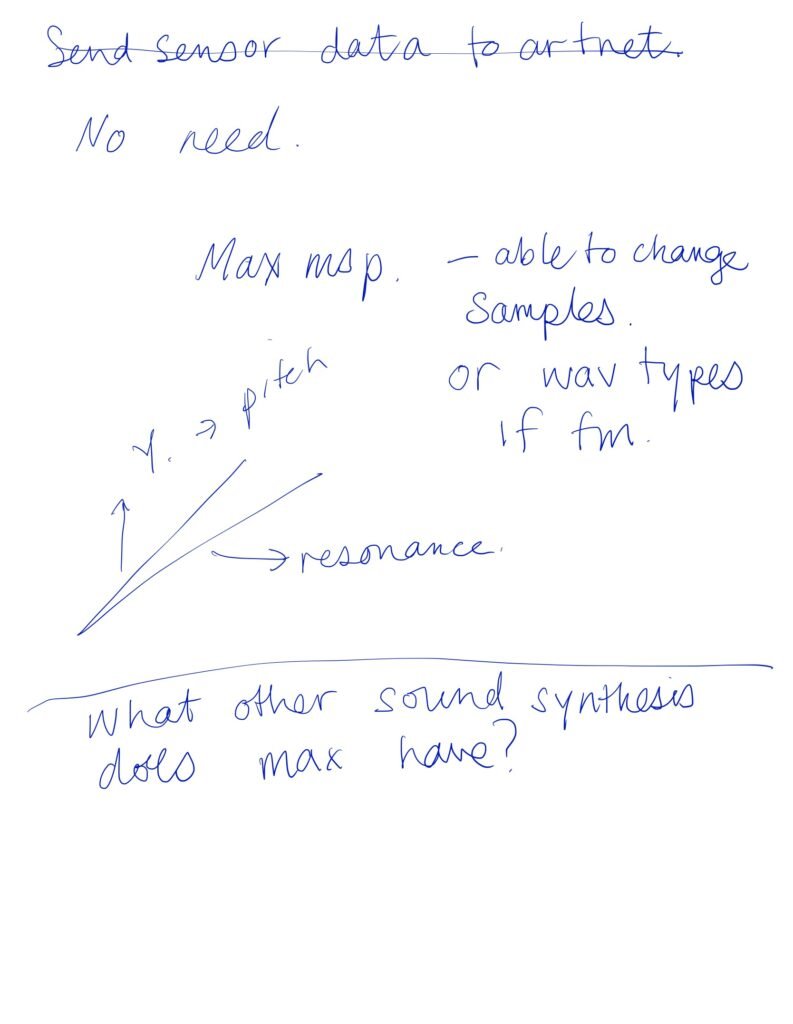 Send sensor data to artnet.
No need.
Max msp. – able to change
samples.
or wav types
if fm.
Y. → pitch
→ resonance.
What other sound synthesis
does max have?